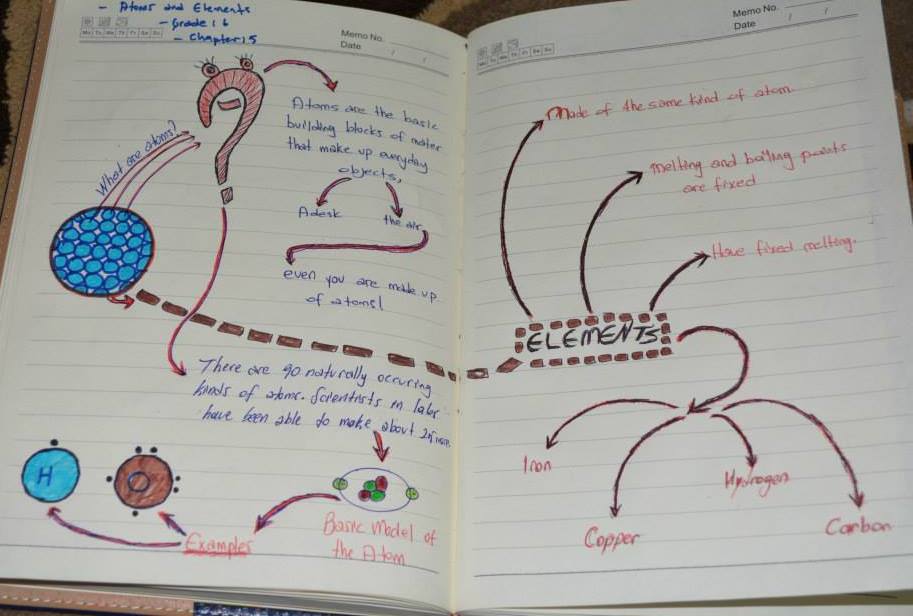 - Atoms and Elements
- Grade : 6
- Chapter : 5
Mo Tu We Th Fr Sa Su
Memo No.
Date / /
What are atoms?
Atoms are the basic
building blocks of mater
that make up everyday
objects,
A desk
the air
even you are made up
of atoms!
There are 90 naturally occuring
kinds of atoms. Scientists in
have been able to make about
H
O
Examples
Basic Model of
the Atom
Mo Tu We Th Fr Sa Su
Memo No.
Date / /
Made of the same kind of atom.
melting and boiling points
are fixed
Have fixed melting.
ELEMENTS
Iron
Copper
Hydrogen
Carbon